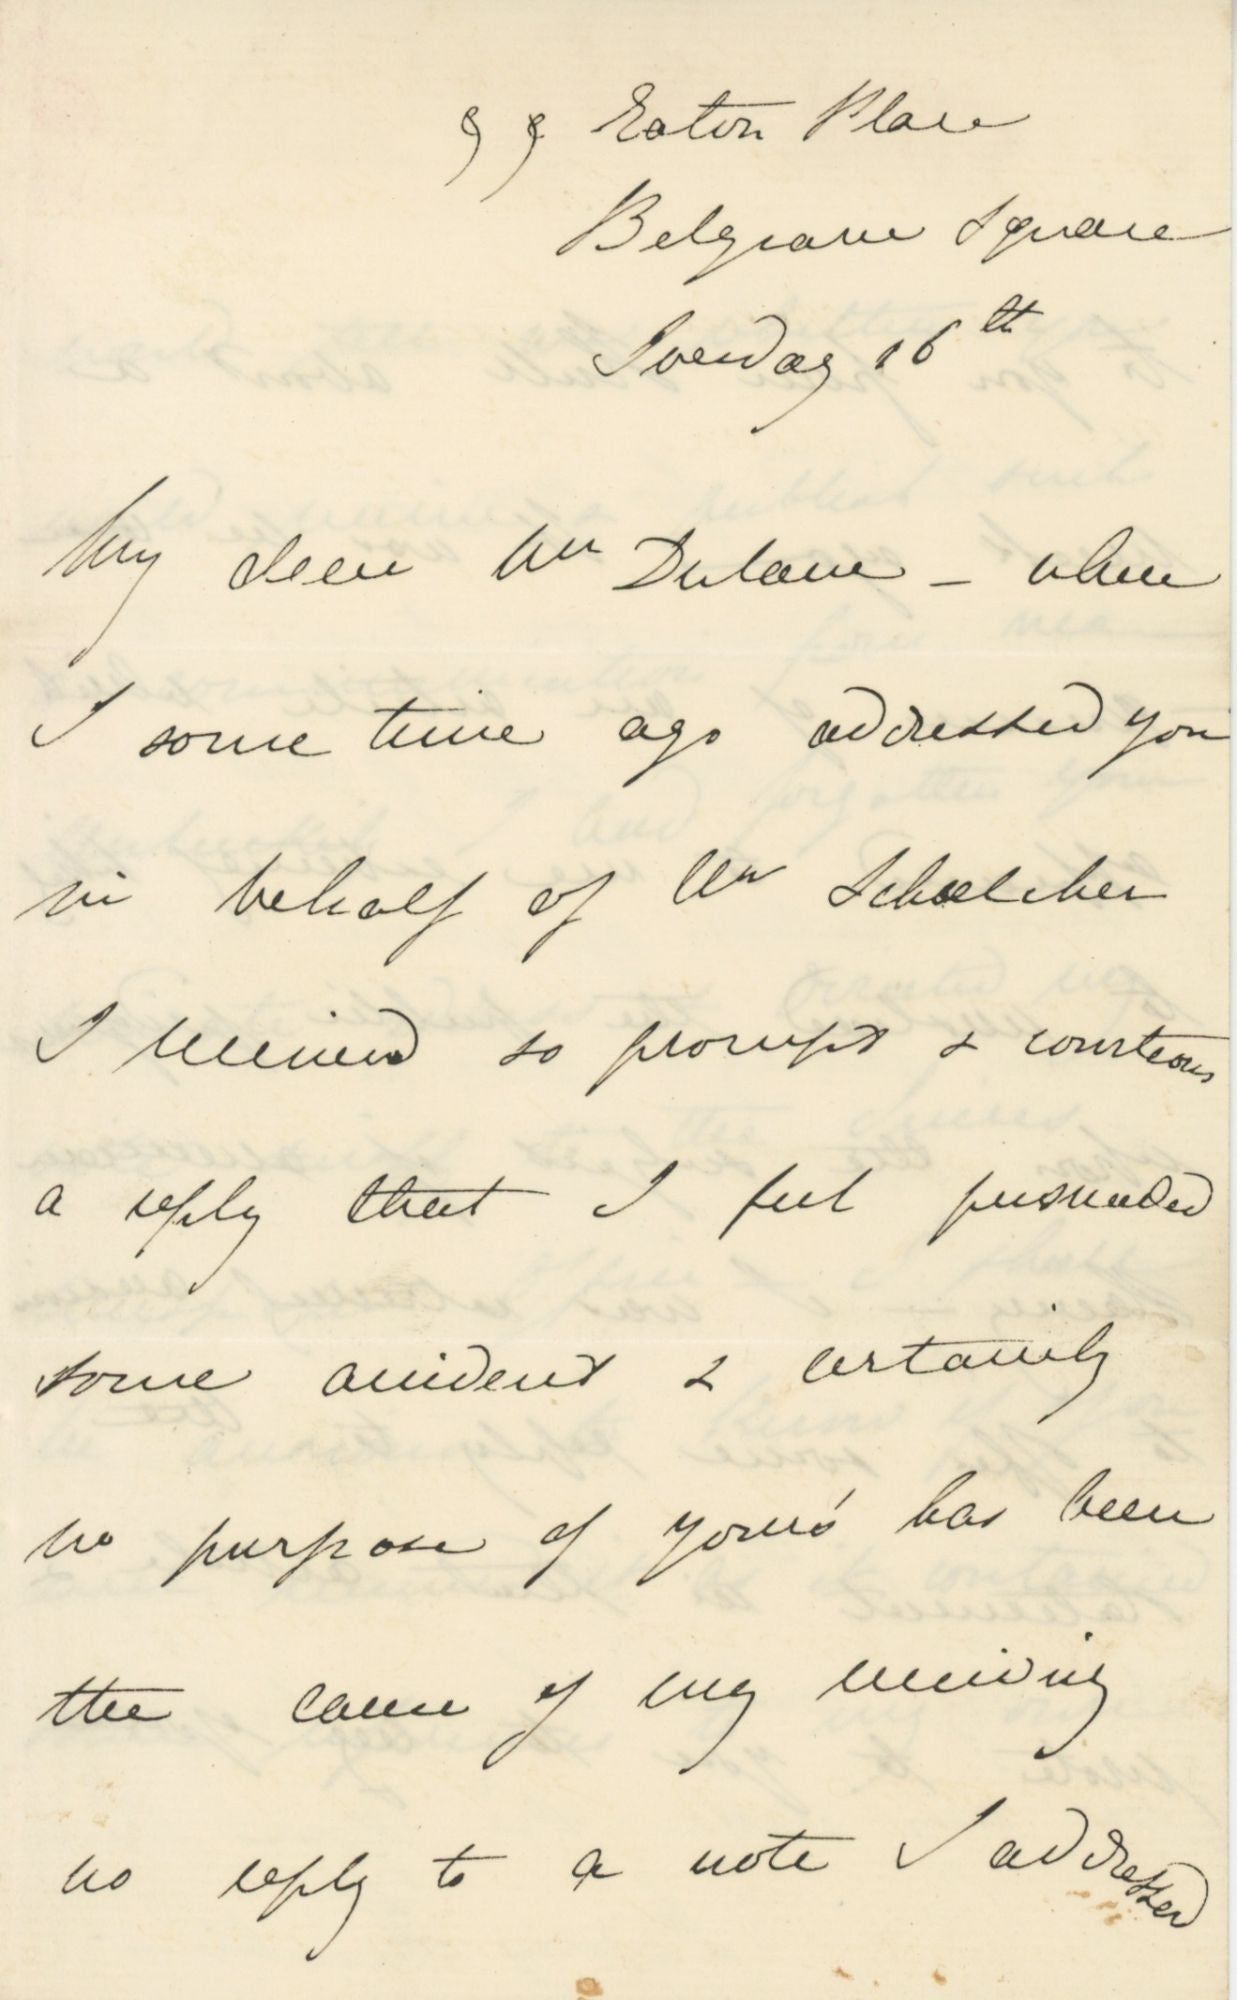 99 Eaton Place
Belgrave Square
Sunday 16th
My dear Mr Delane – when
I some time ago addressed you
in behalf of Mr Schœlcher
I received so prompt & courteous
a reply that I feel persuaded
some accident & certainly
no purpose of your's has been
the cause of my receiving
no reply to a note I addressed